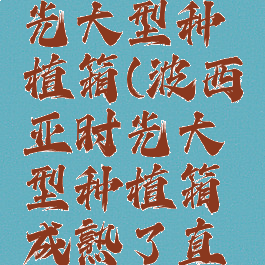 光大型种
植箱(波西
亚时光大
型种植箱
成熟了直